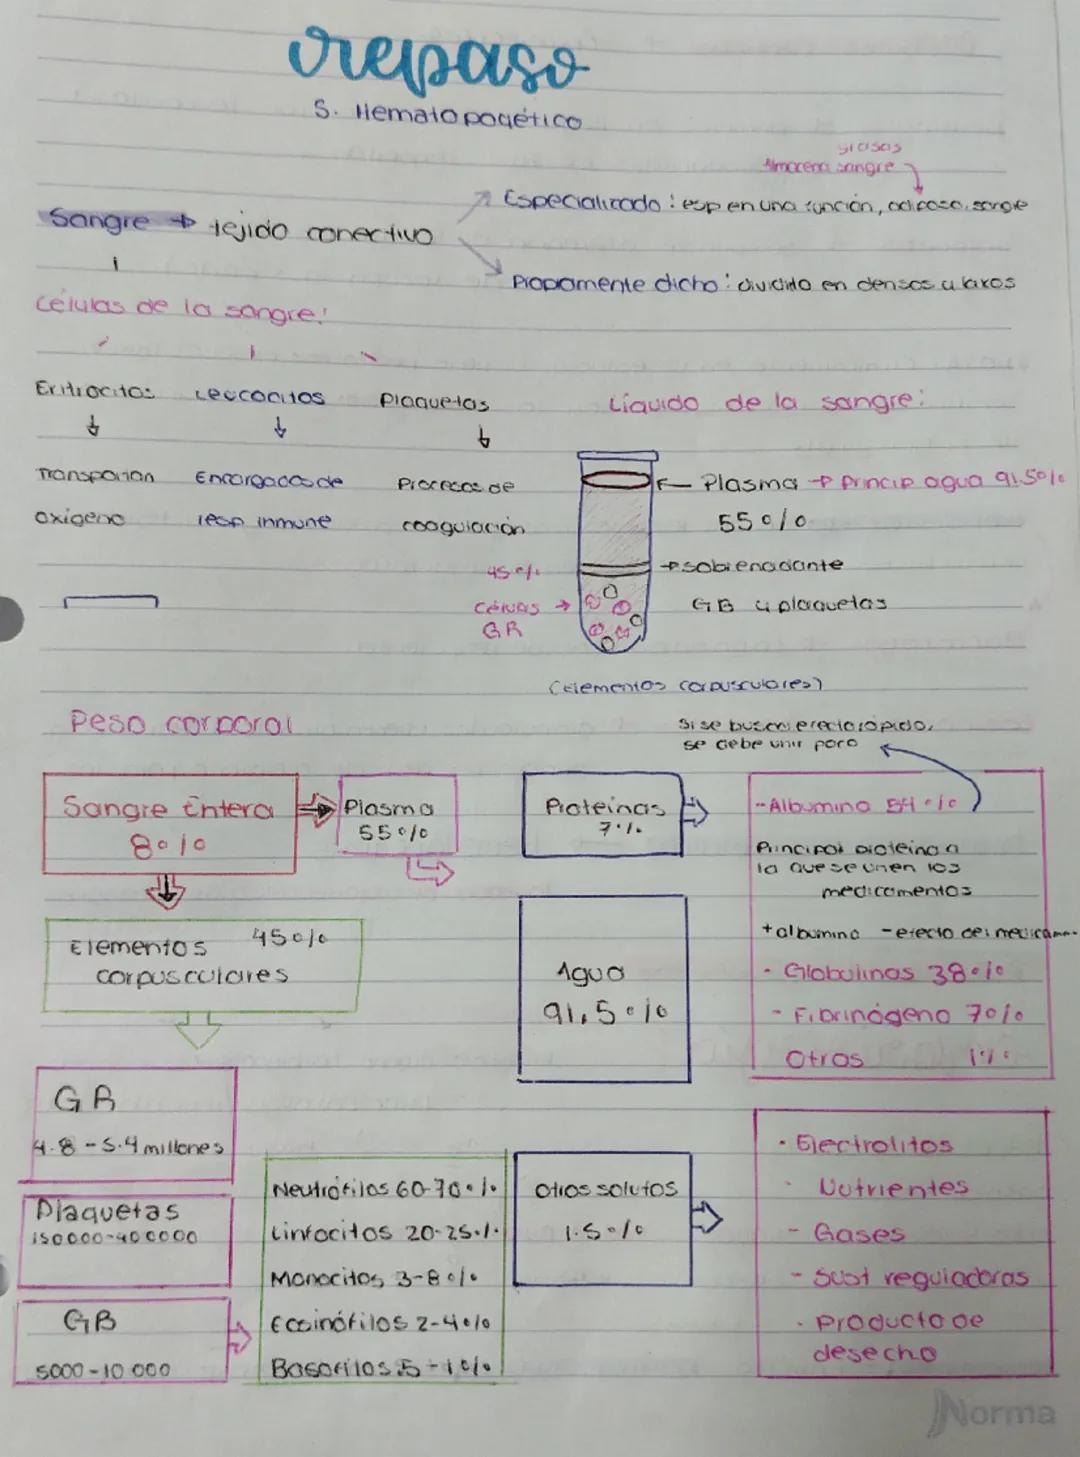 repaso
S. Hematopoyético
grasas
Almacena sangre
Especializado: esp en una función, adiposo, sangre
Sangre → tejido conectivo
Propiamente dicho: dividido en densos y laxos
Células de la sangre:
Eritrocitos Leucocitos Plaquetas
Líquido de la sangre:
Transportan Encargados de Procesos de
oxigeno resp inmune coagulación
Plasma → princip agua 91.5%
55%
45%
→ sobrenadante
Células →
GR
GB y plaquetas
(Elementos corpusculares)
Peso corporal
Si se busca efecto rápido,
se debe unir poco
Sangre Entera
8%
Plasma
55%
Proteínas
7%
- Albumina 54%
Principal proteina a
la que se unen los
medicamentos
+ albumina - efecto del medicam..
- Globulinas 38%
- Fibrinógeno 7%
Otros 1%
Elementos 45%
corpusculares
Agua
91,5%
GR
4.8 - 5.4 millones
Plaquetas
150000-400000
GB
5000-10 000
Neutrófilos 60-70%
Linfocitos 20-25%
Monocitos 3-8%
Eosinófilos 2-4%
Basofilos .5-1%
Otros solutos
1.5%
· Electrolitos
· Nutrientes
- Gases
- Sust reguladoras
· Producto de
desecho
Norma